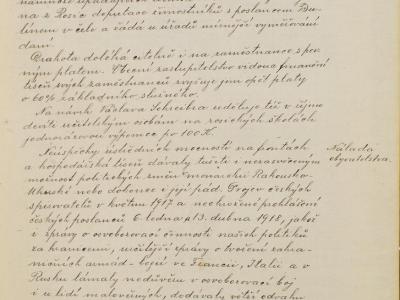 na z Rosic deputace živnostníků s poslancem Bu-
línem v čele a žádá u úřadů mírnější vyměřování
daní.
Drahota doléhá citelně i na zaměstnance s pev-
ným platem. Obecní zastupitelstvo vidouc finanční
tíseň svých zaměstnanců zvyšuje jim opět platy
o 60% základního služného.
Na návrh Václava Schreibra uděluje též v týmo
dnité učitelským osobám na rosických školách
jednorázovou výpomoc po 100 K.
Neúspěchy ústředních mocností na frontách
a hospodářská tíseň dávaly tušiti i nezasvěceným
možnost politických změn monarchii Rakousko-
Uherské nebo dokonce i její pád. Projev českých
spisovatelů v květnu 1917 a neohrožené prohlášení
českých poslanců 6. ledna a 13. dubna 1918, jakož
i zprávy o osvobozovací činnosti našich politiků
za hranicemi, určitější zprávy o tvoření zahra-
ničních armád - bojů ve Francii, Italii a v
Rusku lámaly nedůvěru v osvobozovací boj
i u lidí malověrných, dodávaly větší odvahu
Nálada
obyvatelstva.